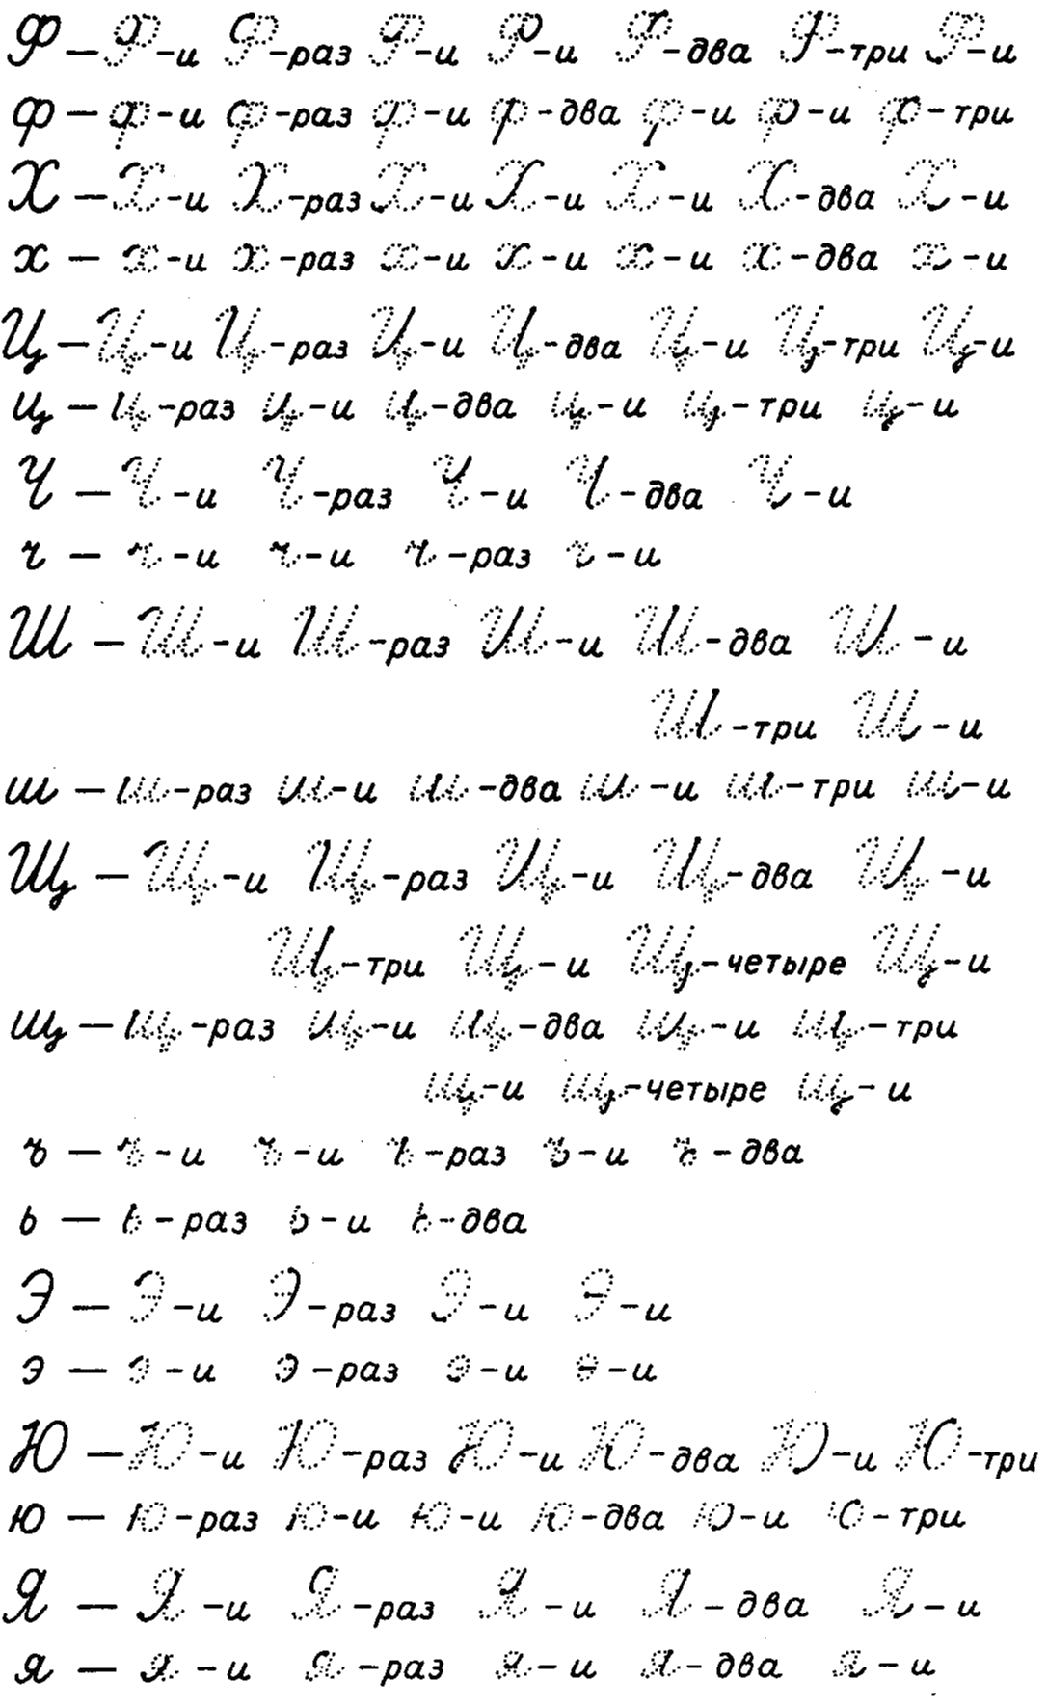 Ф — Ф-и Ф-раз Ф-и Ф-и Ф-два Ф-три Ф-и
ф — ф-и ф-раз ф-и ф-два ф-и ф-и ф-три
Х — Х-и Х-раз Х-и Х-и Х-и Х-два Х-и
х — х-и х-раз х-и х-и х-и х-два х-и
Ц — Ц-и Ц-раз Ц-и Ц-два Ц-и Ц-три Ц-и
ц — ц-раз ц-и ц-два ц-и ц-три ц-и
Ч — Ч-и Ч-раз Ч-и Ч-два Ч-и
ч — ч-и ч-и ч-раз ч-и
Ш — Ш-и Ш-раз Ш-и Ш-два Ш-и
Ш-три Ш-и
ш — ш-раз ш-и ш-два ш-и ш-три ш-и
Щ — Щ-и Щ-раз Щ-и Щ-два Щ-и
Щ-три Щ-и Щ-четыре Щ-и
щ — щ-раз щ-и щ-два щ-и щ-три
щ-и щ-четыре щ-и
ъ — ъ-и ъ-и ъ-раз ъ-и ъ-два
ь — ь-раз ь-и ь-два
Э — Э-и Э-раз Э-и Э-и
э — э-и э-раз э-и э-и
Ю — Ю-и Ю-раз Ю-и Ю-два Ю-и Ю-три
ю — ю-раз ю-и ю-и ю-два ю-и ю-три
Я — Я-и Я-раз Я-и Я-два Я-и
я — я-и я-раз я-и я-два я-и